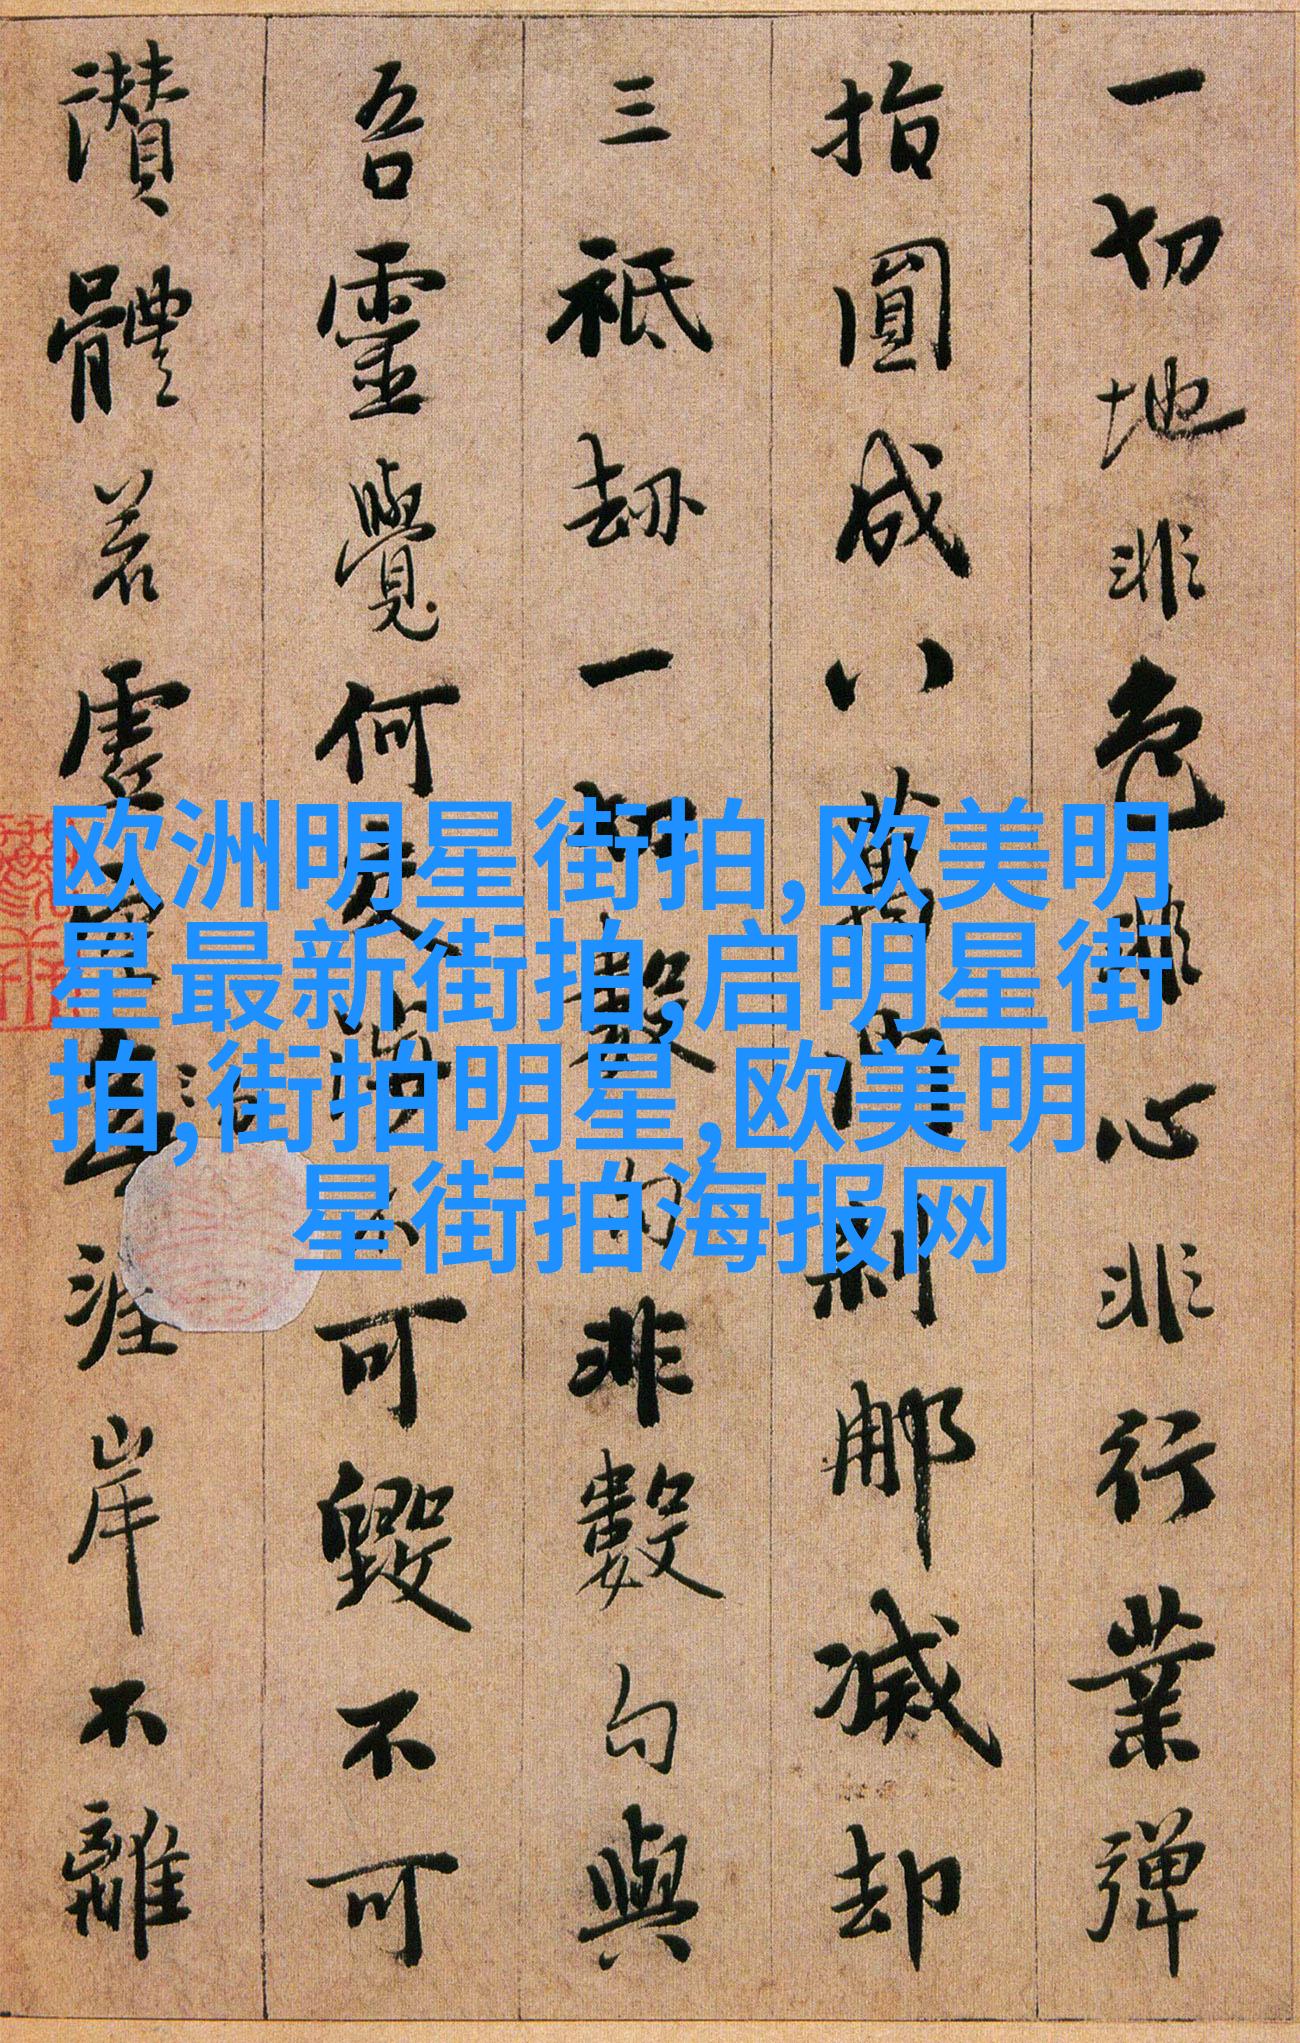 一切地非色非心非行業彈
指圓成八萬門刹那滅却
三祇劫一切數句非數句與
吾靈覺何交涉不可毀不可
讚體若虛空涯岸不離
欧洲明星街拍,欧美明
星最新街拍,启明星街
拍,街拍明星,欧美明
星街拍海报网